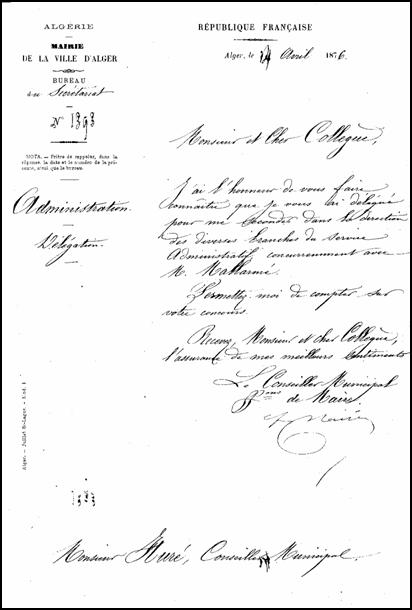 ALGÉRIE
MAIRIE
DE LA VILLE D'ALGER
BUREAU
du Secrétariat
N° 1393
NOTA. — Prière de rappeler, dans la
réponse, la date et le numéro de la pré-
sente, ainsi que le bureau.
Administration.
Délégation.
RÉPUBLIQUE FRANÇAISE
Alger, le 14 Avril 1876.
Monsieur et Cher Collègue,
J'ai l'honneur de vous faire
connaître que je vous ai délégué
pour me seconder dans la direction
des diverses branches du service
Administratif, concurremment avec
M. Mallarmé.
Permettez-moi de compter sur
votre concours.
Recevez, Monsieur et cher Collègue,
l'assurance de mes meilleurs sentiments
Le Conseiller Municipal
ff.ons de Maire.
Alger. — Juillet St-Lager.
1393
Monsieur Huré, Conseiller Municipal.